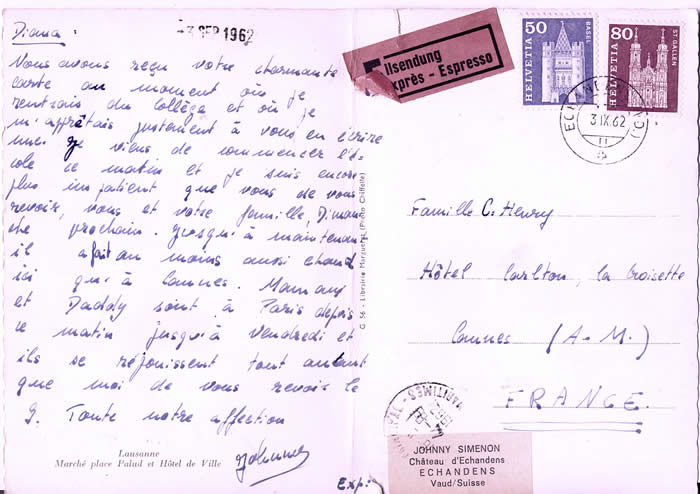 Diana
- 3 SEP 1962
Nous avons reçu votre charmante
carte au moment où je
rentrais du collège et où je
m'apprêtais justement à vous en écrire
une. Je viens de commencer l'é-
cole ce matin et je suis encore
plus impatient que vous de vous
revoir, vous et votre famille, Diman
che prochain. Jusqu'à maintenan
il a fait au moins aussi chaud
ici qu'à Cannes. Mamany
et Daddy sont à Paris depuis
ce matin jusqu'à Vendredi et
ils se réjouissent tout autant
que moi de vous revoir le
9. Toute notre affection
Johnny
Lausanne
Marché place Palud et Hôtel de Ville
G 56 - Librairie Marguerat (Photo Chiffelle)
Exp:
ilsendung
xprès - Espresso
50
HELVETIA
BASEL
80
HELVETIA
ST. GALLEN
ECHANDENS
3 IX. 62
11
Famille C. Henry
Hôtel Carlton, la Croisette
Cannes (A-M.)
FRANCE.
MARITIMES
JOHNNY SIMENON
Château d'Echandens
ECHANDENS
Vaud/Suisse